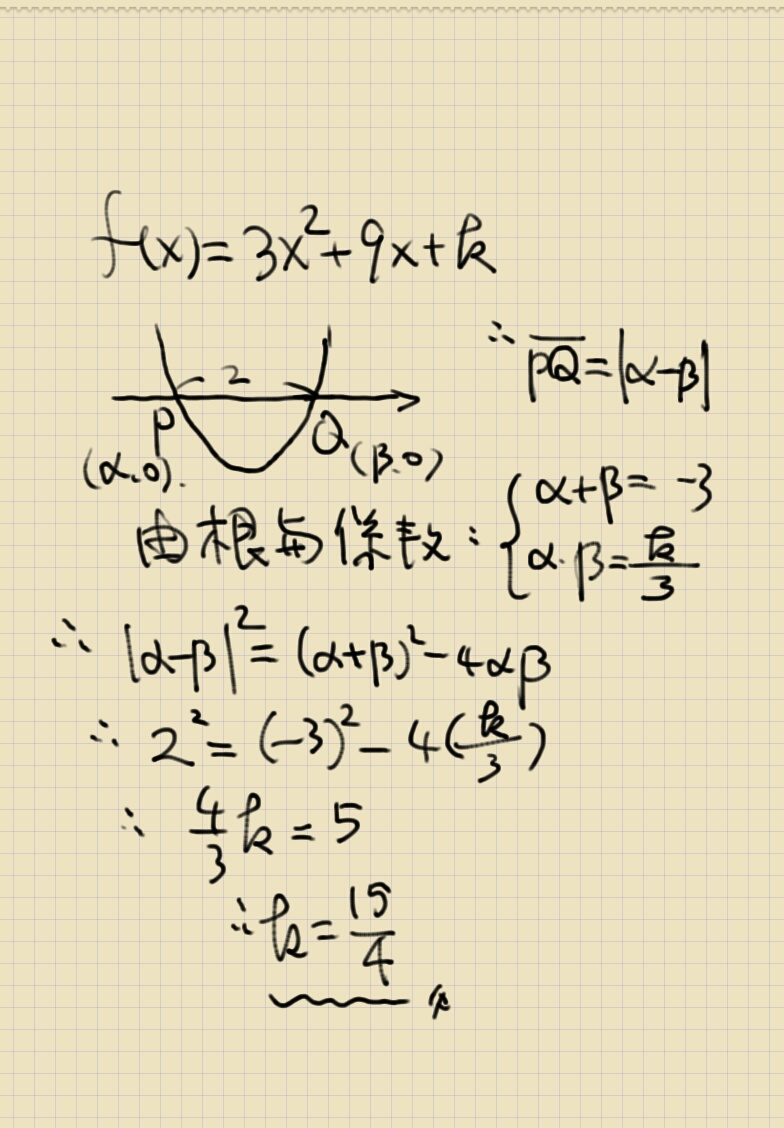 f(x)=3x²+9x+k
∴ PQ̅=|α-β|
2
P Q
(α,0). (β,0)
由根与係数: {α+β=-3
α·β=k/3
∴ |α-β|²=(α+β)²-4αβ
∴ 2²=(-3)²-4(k/3)
∴ 4/3 k=5
∴k=15/4